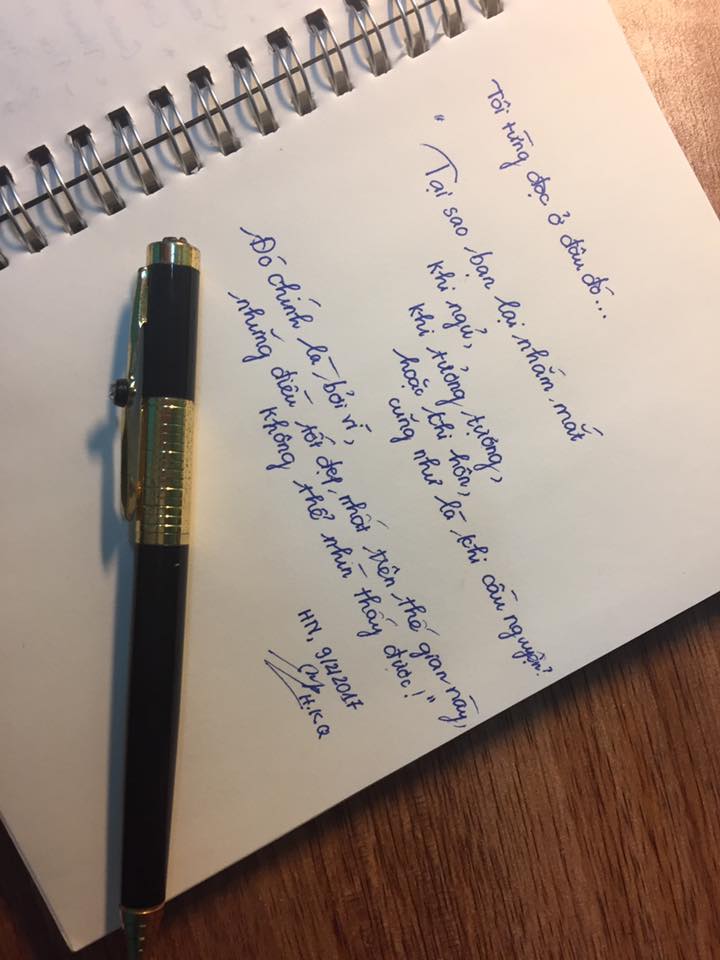 Tôi từng đọc ở đâu đó...
" Tại sao bạn lại nhắm mắt
khi ngủ,
khi tưởng tượng,
hoặc khi hôn,
cũng như là khi cầu nguyện?
Đó chính là bởi vì,
những điều tốt đẹp nhất trên thế gian này,
không thể nhìn thấy được! "
HN, 9/2/2017
H.K.Q